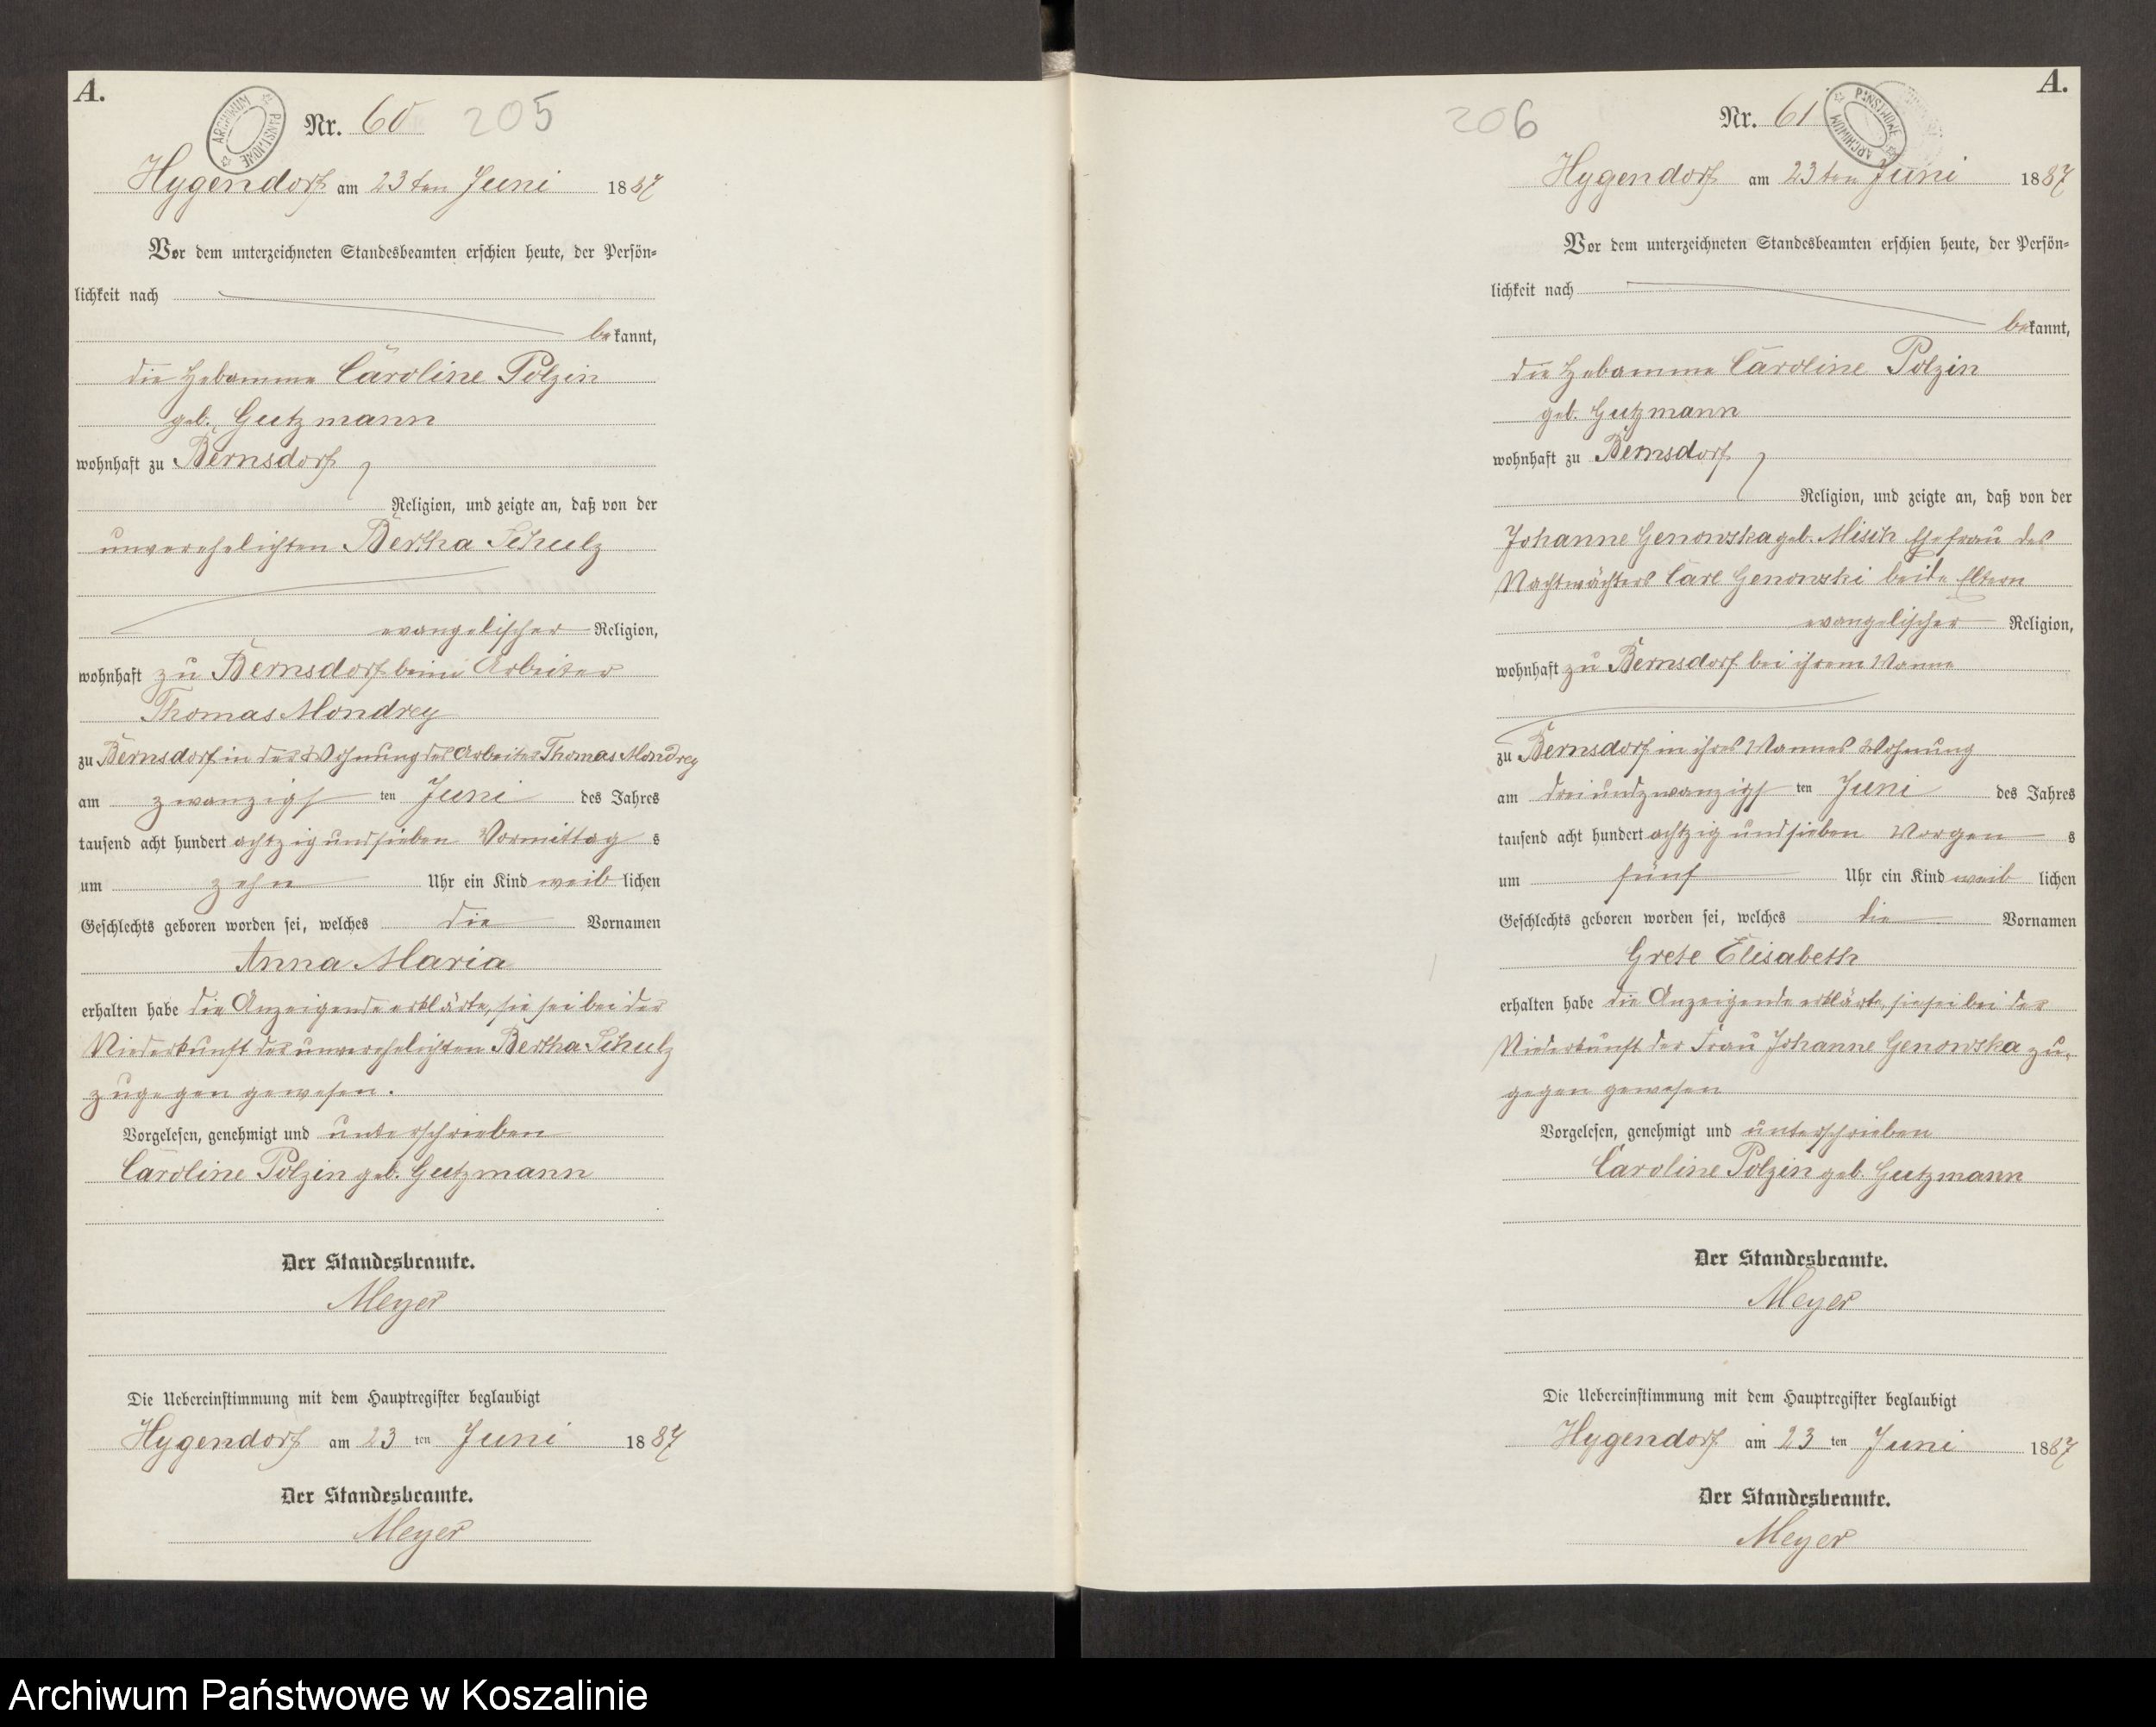 A.
ARCHIWUM PAŃSTWOWE
Nr. 60 205
Hygendorf am 23ten Juni 1887
Vor dem unterzeichneten Standesbeamten erschien heute, der Persön-
lichkeit nach
bekannt,
die Hebamme Caroline Polzin
geb. Gutzmann
wohnhaft zu Bernsdorf,
Religion, und zeigte an, daß von der
unverehelichten Bertha Schulz
evangelischer Religion,
wohnhaft zu Bernsdorf beim Arbeiter
Thomas Mondrey
zu Bernsdorf in der Wohnung des Arbeiter Thomas Mondrey
am zwanzigst ten Juni des Jahres
tausend acht hundert achtzig und sieben Vormittag s
um zehn Uhr ein Kind weib lichen
Geschlechts geboren worden sei, welches die Vornamen
Anna Maria
erhalten habe die Anzeigende erklärte, sie sei bei der
Niederkunft der unverehelichten Bertha Schulz
zugegen gewesen.
Vorgelesen, genehmigt und unterschrieben
Caroline Polzin geb. Gutzmann
Der Standesbeamte.
Meyer
Die Uebereinstimmung mit dem Hauptregister beglaubigt
Hygendorf am 23 ten Juni 1887
Der Standesbeamte.
Meyer
A.
206 Nr. 61
PAŃSTWOWE ARCHIWUM
Hygendorf am 23ten Juni 1887
Vor dem unterzeichneten Standesbeamten erschien heute, der Persön-
lichkeit nach
bekannt,
die Hebamme Caroline Polzin
geb. Gutzmann
wohnhaft zu Bernsdorf,
Religion, und zeigte an, daß von der
Johanne Genowska geb. Misch Ehefrau des
Nachtwächters Carl Genowski beide Eltern
evangelischer Religion,
wohnhaft zu Bernsdorf bei ihrem Manne
zu Bernsdorf in ihres Mannes Wohnung
am dreiundzwanzigst ten Juni des Jahres
tausend acht hundert achtzig und sieben Morgen s
um fünf Uhr ein Kind weib lichen
Geschlechts geboren worden sei, welches die Vornamen
Grete Elisabeth
erhalten habe die Anzeigende erklärte, sie sei bei der
Niederkunft der Frau Johanne Genowska zu-
gegen gewesen
Vorgelesen, genehmigt und unterschrieben
Caroline Polzin geb. Gutzmann
Der Standesbeamte.
Meyer
Die Uebereinstimmung mit dem Hauptregister beglaubigt
Hygendorf am 23 ten Juni 1887
Der Standesbeamte.
Meyer
Archiwum Państwowe w Koszalinie